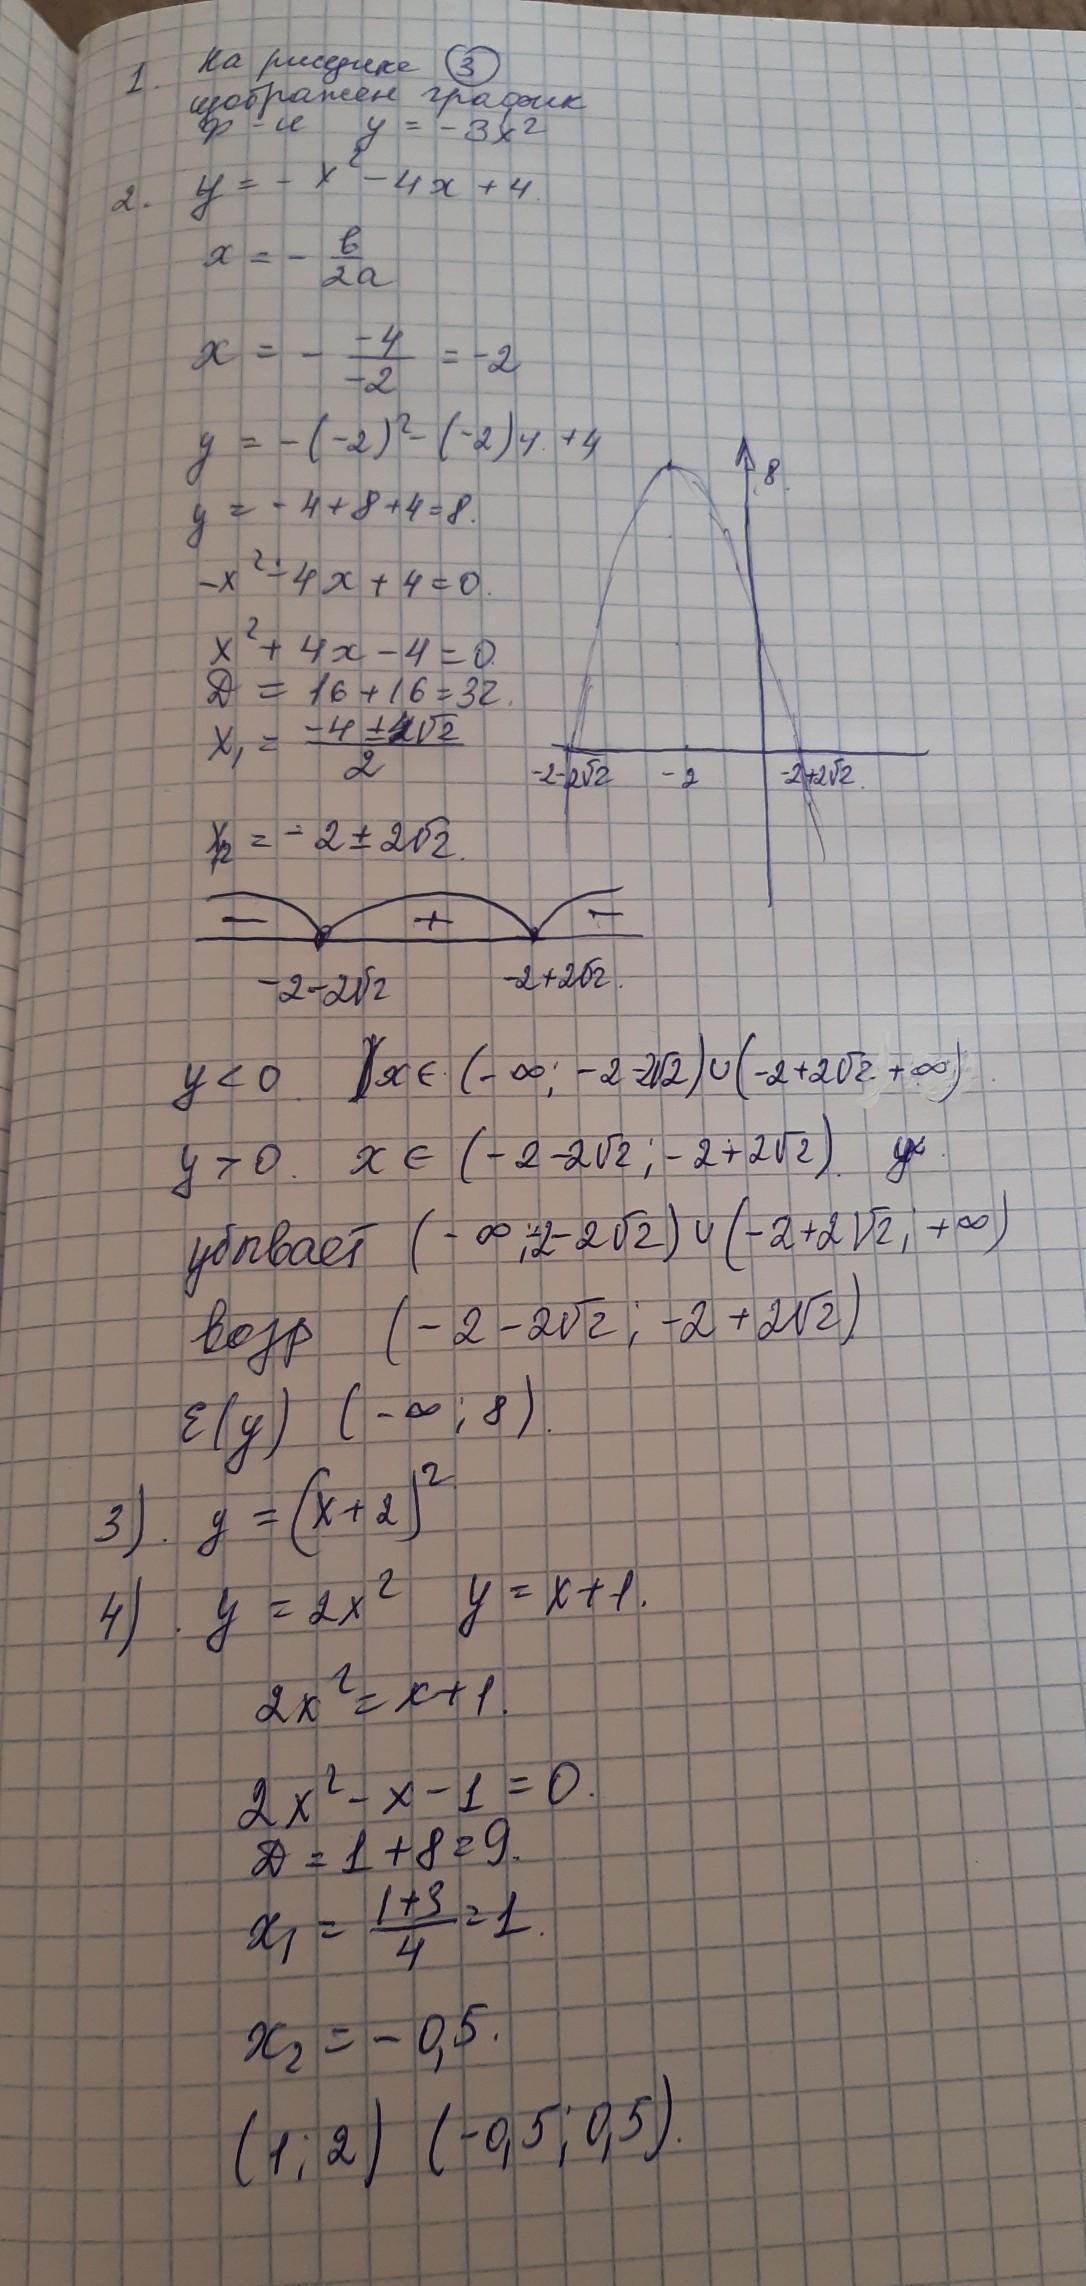 1. На рисунке ③
изображен график
ф-и y = -3x²
2. y = -x² - 4x + 4.
x = - в/2a
x = - -4/-2 = -2
y = -(-2)² - (-2)4 + 4
y = -4 + 8 + 4 = 8.
-x² - 4x + 4 = 0.
x² + 4x - 4 = 0.
Д = 16 + 16 = 32.
x₁ = -4 ± 4√2 / 2
x₂ = -2 ± 2√2.
8.
-2-2√2 -2 -2+2√2.
- + -
-2-2√2 -2+2√2.
y < 0 x ∈ (-∞; -2-2√2) ∪ (-2+2√2 +∞).
y > 0. x ∈ (-2-2√2; -2+2√2).
убывает (-∞; -2-2√2) ∪ (-2+2√2; +∞)
возр (-2-2√2; -2+2√2)
E(y) (-∞; 8).
3). y = (x+2)²
4). y = 2x² y = x+1.
2x² = x+1.
2x² - x - 1 = 0.
Д = 1 + 8 = 9.
x₁ = 1+3/4 = 1.
x₂ = -0,5.
(1; 2) (-0,5; 0,5).